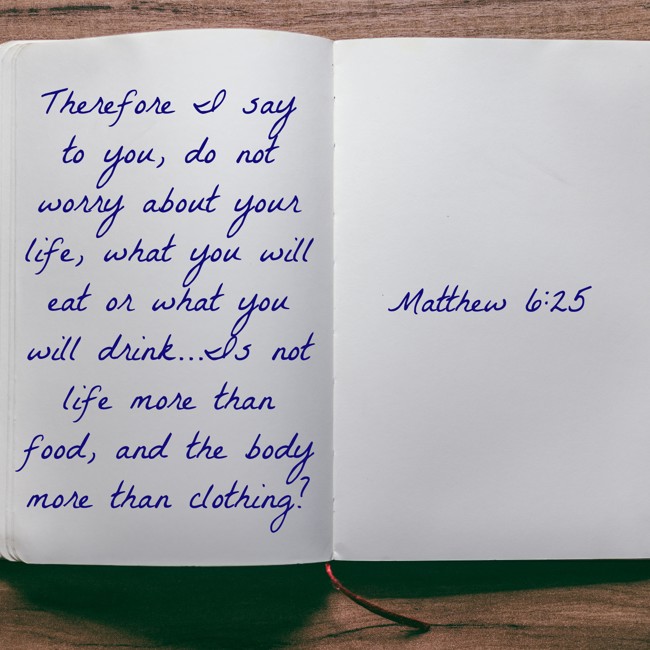 Therefore I say
to you, do not
worry about your
life, what you will
eat or what you
will drink...Is not
life more than
food, and the body
more than clothing?
Matthew 6:25